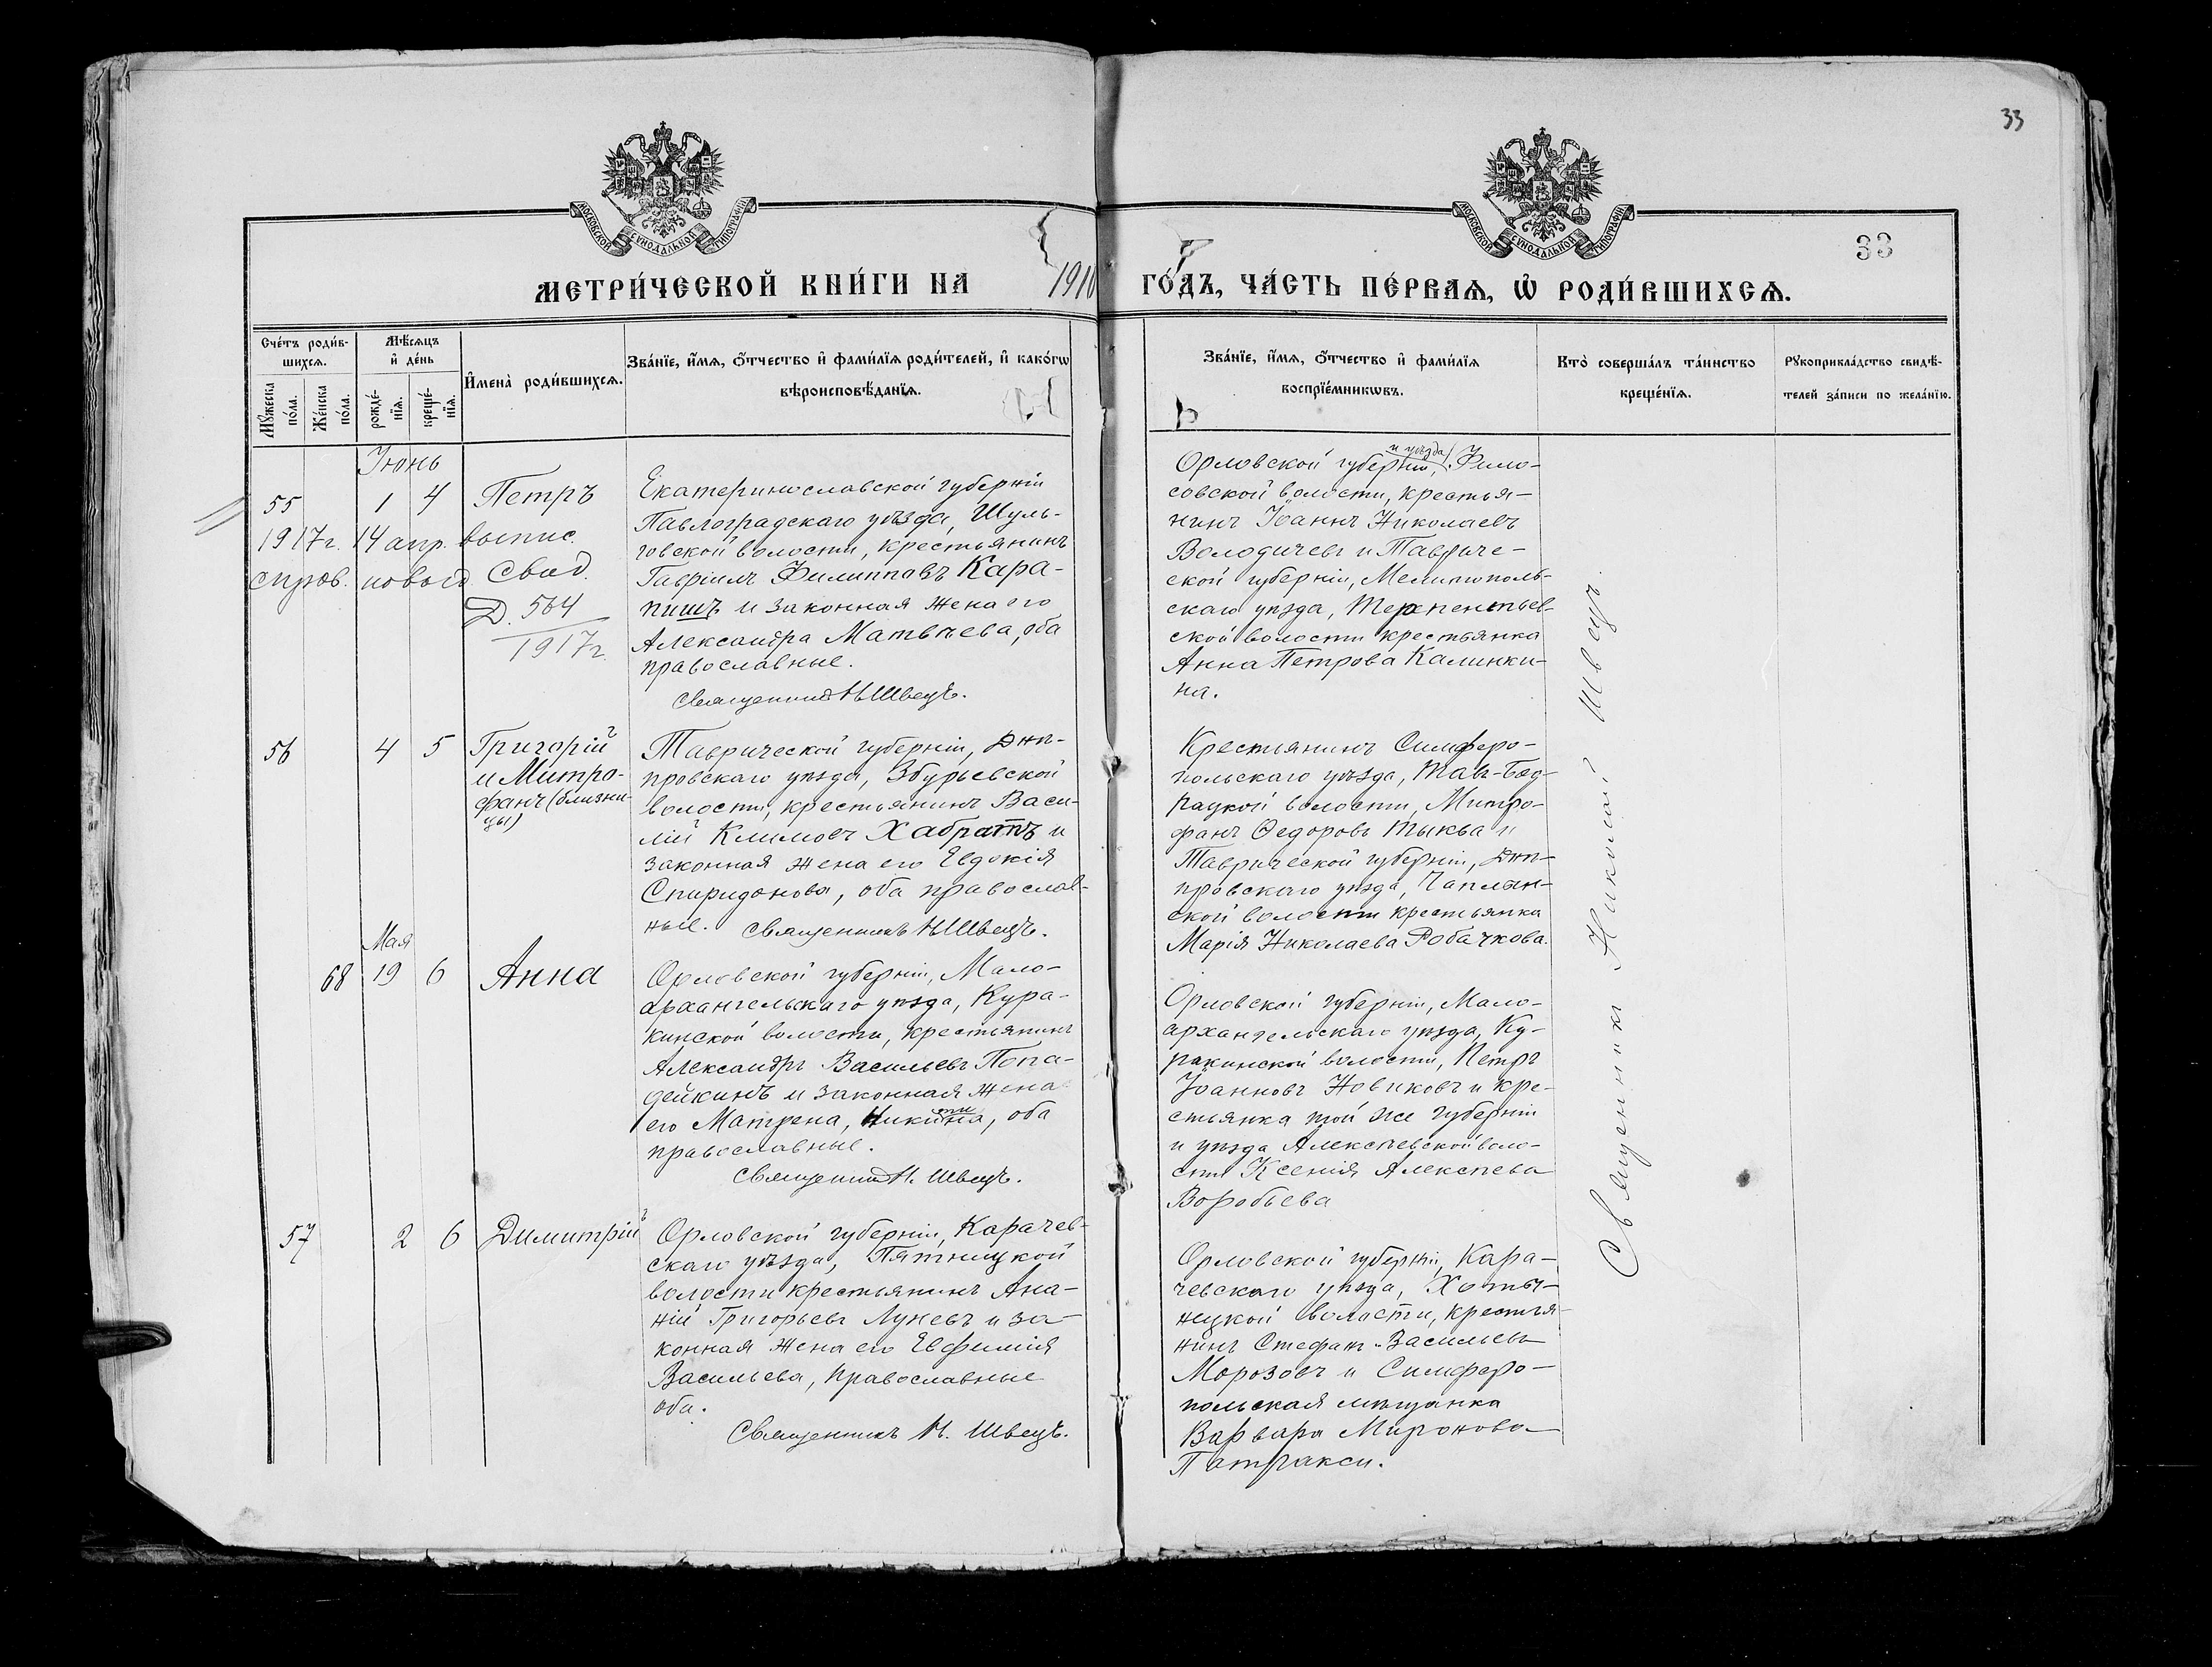 33
МОСКОВСКОЙ СѴНОДАЛЬНОЙ ТИПОГРАФІИ
МОСКОВСКОЙ СѴНОДАЛЬНОЙ ТИПОГРАФІИ
33
МЕТРИ́ЧЕСКОЙ КНИ́ГИ НА 1910 ГО́ДЪ, ЧА́СТЬ ПЕ́РВАѦ, Ѡ҆ РОДИ́ВШИХСѦ.
Сче́тъ роди́в-
шихсѧ.
Мꙋ́жеска по́ла.
Же́нска по́ла.
Мѣ́сѧцъ
и҆ де́нь
рожде́-
нїѧ.
креще́-
нїѧ.
И҆мена̀ роди́вшихсѧ.
Зва́нїе, и҆́мѧ, ѻ҆́тчество и҆ фами́лїѧ роди́телей, и҆ како́гѡ
вѣроисповѣ́данїѧ.
Зва́нїе, и҆́мѧ, ѻ҆́тчество и҆ фами́лїѧ
воспрїе́мникѡвъ.
Кто̀ соверша́лъ та́инство
креще́нїѧ.
Рꙋкоприкла́дство свидѣ́-
телей за́писи по жела́нїю.
Іюнь
55 1 4 Петръ
1917г. 14 апр. выпис.
справ. метр. Свид.
Д. 564
1917г.
Екатеринославской губерніи
Павлоградскаго уѣзда, Шуль-
говской волости, крестьянинъ
Гавріилъ Филипповъ Кара-
пишъ и законная жена его
Александра Матвѣева, оба
православные.
Священникъ Н Швецъ.
Орловской губерніи и уѣзда, Фило-
совской волости, крестья-
нинъ Іоаннъ Николаевъ
Володичевъ и Тавриче-
ской губерніи, Мелитополь-
скаго уѣзда, Терпеньев-
ской волости крестьянка
Анна Петрова Калинки-
на.
56 4 5 Григорій
и Митро-
фанъ (близне-
цы)
Таврической губерніи, Днѣ-
провскаго уѣзда, Збурьевской
волости, крестьянинъ Васи-
лій Климовъ Хабратъ и
законная жена его Евдокія
Спиридонова, оба православ-
ные. Священникъ Н Швецъ.
Крестьянинъ Симферо-
польскаго уѣзда, Тав-Бад-
рацкой волости, Митро-
фанъ Ѳедоровъ Тыква и
Таврической губерніи, Днѣ-
провскаго уѣзда, Чаплин-
ской волости крестьянка
Марія Николаева Робачкова.
Мая
68 19 6 Анна
Орловской губерніи, Мало-
архангельскаго уѣзда, Кура-
кинской волости, крестьянинъ
Александръ Васильевъ Попа-
дейкинъ и законная жена
его Матрена, Никитина, оба
православные.
Священникъ Н. Швецъ.
Орловской губерніи, Мало-
архангельскаго уѣзда, Ку-
ракинской волости, Петръ
Іоанновъ Новиковъ и кре-
стьянка той же губерніи
и уѣзда Алексѣевской воло-
сти Ксенія Алексѣева
Воробьева
57 2 6 Димитрій
Орловской губерніи, Карачев-
скаго уѣзда, Пятницкой
волости крестьянинъ Ана-
ній Григорьевъ Луневъ и за-
конная жена его Евфимія
Васильева, православные
оба.
Священникъ Н. Швецъ.
Орловской губерніи, Кара-
чевскаго уѣзда, Хоты-
нецкой волости, крестья-
нинъ Стефанъ Васильевъ
Морозовъ и Симферо-
польская мѣщанка
Варвара Миронова
Патракси.
Священникъ Николай Швецъ.